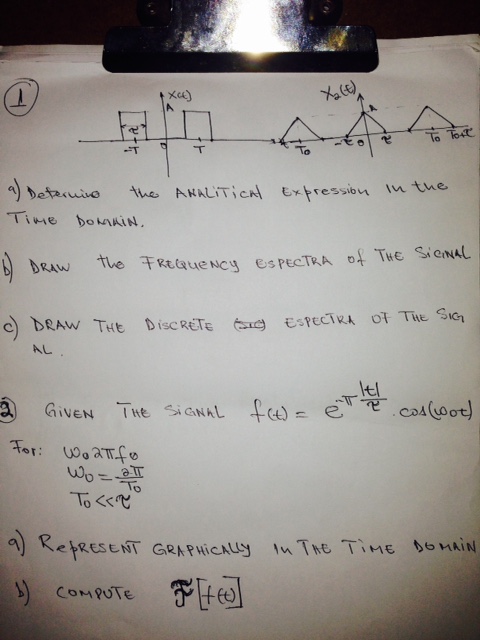 1
X(t)
A
τ
-T
0
T
X₂(t)
A
-τ
T₀
-τ 0 τ
T₀ T₀+τ
a) Determine the ANALITICAL Expression In the
TIME DOMAIN.
b) DRAW the FREQUENCY ESPECTRA of THE SIGNAL
c) DRAW THE DISCRETE ESPECTRA OF THE SIG
AL.
2 GIVEN THE SIGNAL f(t) = e^{-π |t|/τ} . cos(ω₀t)
For: ω₀ 2πf₀
ω₀ = 2π/T₀
T₀ << τ
a) REPRESENT GRAPHICALLY IN THE TIME DOMAIN
b) COMPUTE F[f(t)]